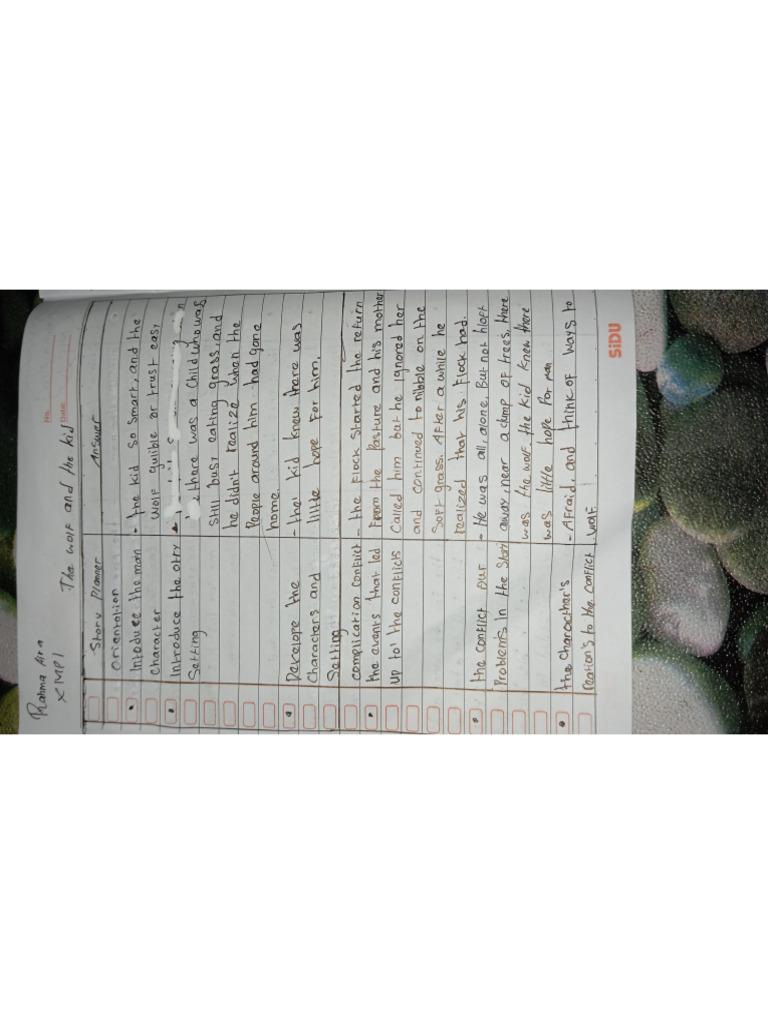 Rahma Aira
X MP1
No.
Date
The wolf and the kid
Story Planner Answer
Orientation
Intoduce the main - the kid so smart, and the
Character wolf gulible or trust easy
Introduce the otry
Setting there was a child who was
still busy eating grass, and
he didn't realize when the
People around him had gone
home.
Develope the - the kid knew there was
Characters and little hope for him.
Setting
complication conflict - the flock started the return
the events that led From the pasture and his mother
up to' the conflicts Called him but he ignored her
and continued to nibble on the
soft grass. After a while he
realized that his flock had.
the conflict our - He was all, alone. But not
Problems in the Stori away, near a clump of trees, there
was the wolf. the kid knew there
was little hope for
the charocther's - Afraid, and think of ways to
reation's to the conflict wolf
SiDU